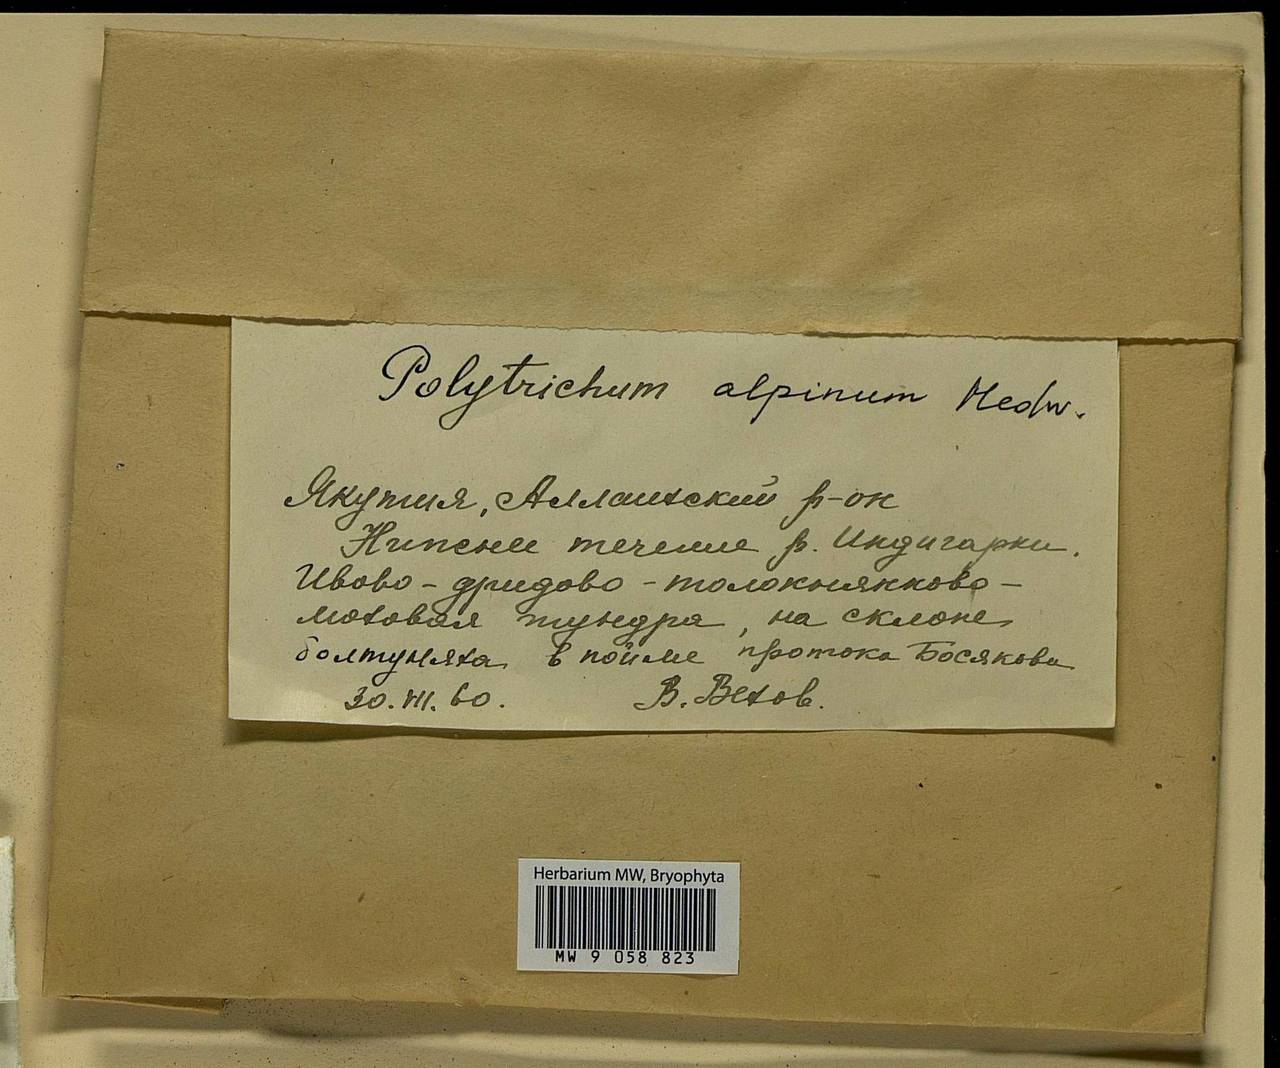 Polytrichum alpinum Hedw.
Якутия, Аллаиховский р-он
Нижнее течение р. Индигарки.
Ивово-дридово-толокнянково-
моховая тундра, на склоне
болтуняха в пойме протока Босякова
30.VII.60. В. Вехов.
Herbarium MW, Bryophyta
MW 9 058 823